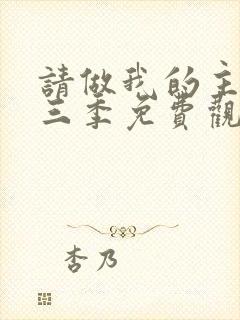 請做我的主
三季免費觀
杏乃